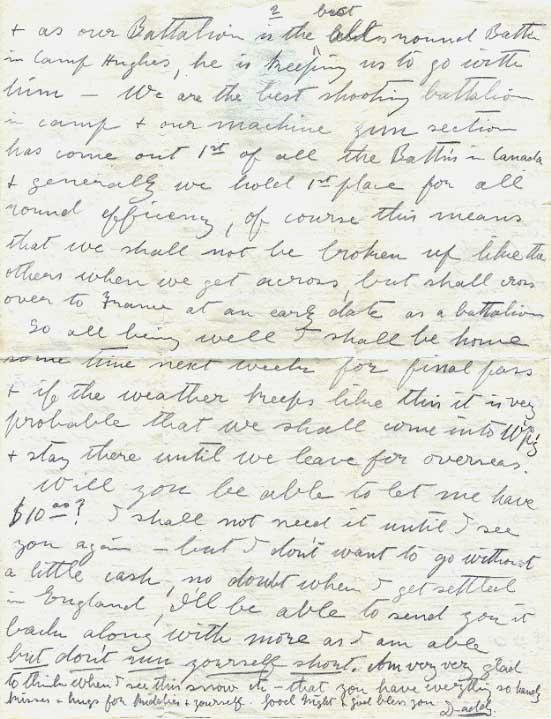 2 best
+ as our Battalion is the round Battn
in Camp Hughes, he is keeping us to go with
him — We are the best shooting battalion
in camp + our machine gun section
has come out 1st of all the Battns in Canada
+ generally we hold 1st place for all
round efficency, of course this means
that we shall not be broken up like the
others when we get across, but shall cross
over to France at an early date as a battalion
So all being well I shall be home
some time next week for final pass
+ if the weather keeps like this it is very
probable that we shall come into W'p'g
+ stay there until we leave for overseas.
Will you be able to let me have
$10 00? I shall not need it until I see
you again — but I don't want to go without
a little cash, no doubt when I get settled
in England, I'll be able to send you it
back along with more as I am able
but don't run yourself short. Am very very glad
to think when I see this snow etc that you have everything so handy
kisses + hugs for kiddies + yourself. Good Night + God bless you Daddy.